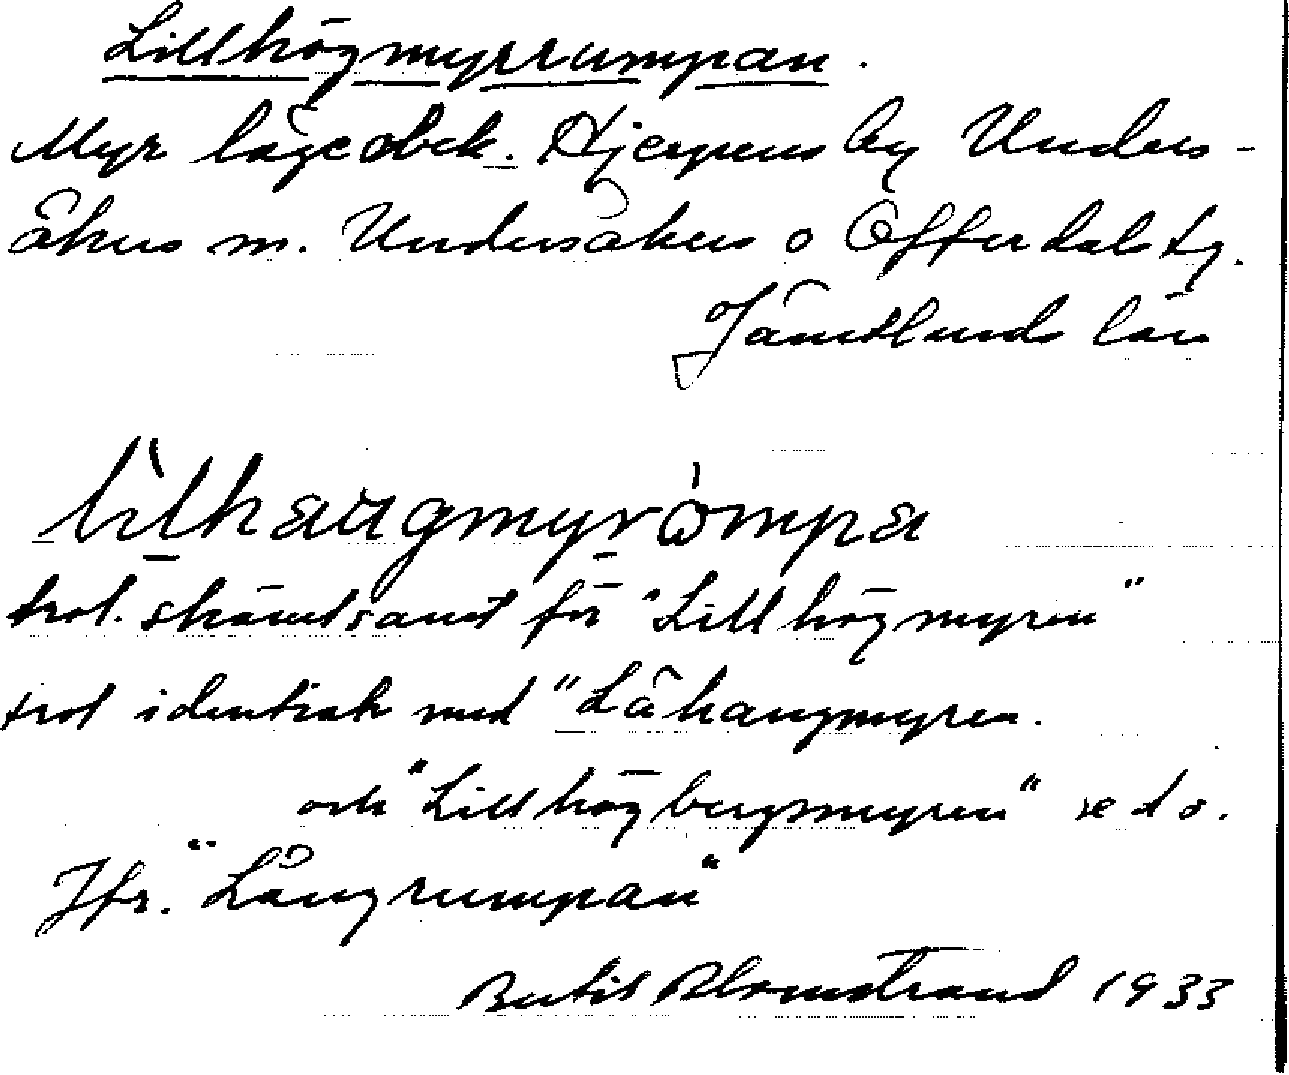 Lillhögmyrrumpan.
Myr läge obek. Hjerpens by Unders-
åkers sn. Undersåkers o Offerdals tg.
Jämtlands län
lìlhaugmyrømpa
trol. skämtsamt för "Lillhögmyren"
trol identisk med "Låhaugmyren.
och "Lillhögbergsmyren" se d o.
Jfr. "Långrumpan"
Bertil Blomstrand 1933